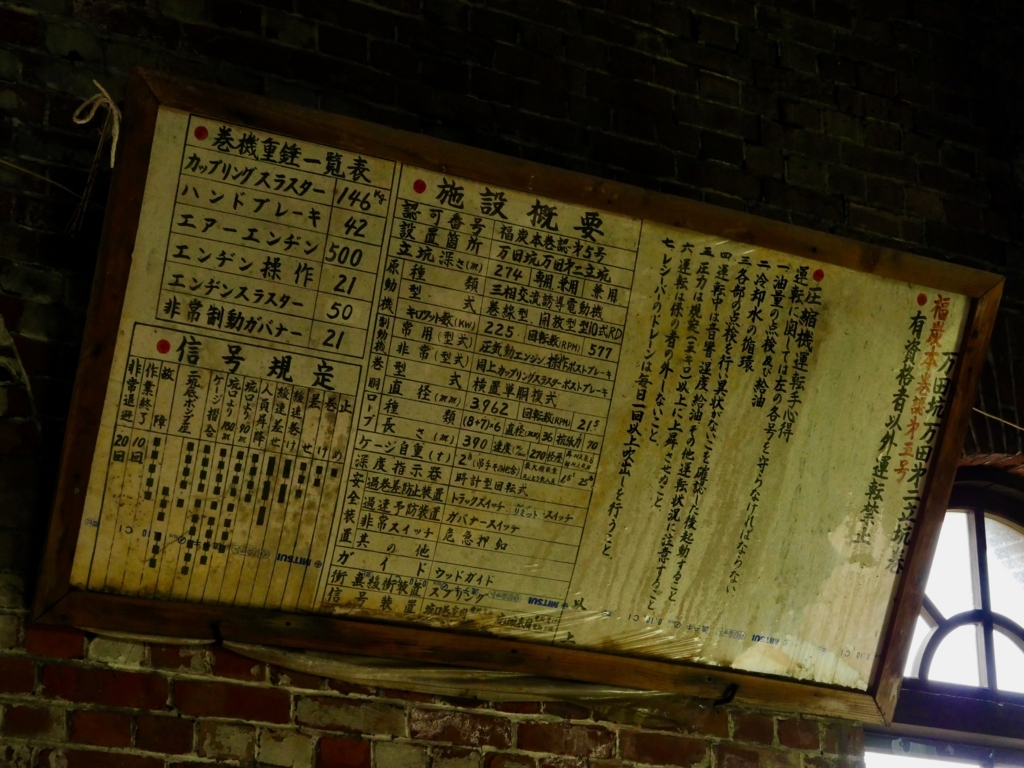 万田坑万田才二立坑巻
福炭本巻認才五号
有資格者以外運転禁止
圧縮機運転手心得
運転に関しては左の各号を守らなければならない
一 油量の点検及び給油
二 冷却水の循環
三 各部の点検を行い異状がないことを確認した後起動すること
四 運転中は音響、温度、給油その他運転状況に注意すること
五 圧力は規定
以上に上昇させぬこと
六 運転は係の者の外しないこと
七 レシーバーのドレーンは毎日一回以上吹出しを行うこと
以上
施設概要
認可番号 福炭本巻認才5号
設置箇所 万田坑万田才二立坑
立坑深さ(m) 274 専用兼用 兼用
原動機
種類 三相交流誘導電動機
型式 巻線型 開放型10式RD
キロワット数(KW) 225 回転数(RPM) 577
制動機
常用(型式) 圧気動エンジン操作ポストブレーキ
非常(型式) 同上カップリングスラスターポストブレーキ
巻胴
型式 横置単胴複式
直径(mm) 3962 回転数(RPM) 21.5
ロープ
種類 (8+7)×6 直径(mm) 36 抗張力 70
長さ(m) 390 速度 270
ケージ自重(t)
深度指示器 時計型回転式
安全装置
過巻防止装置 トラックスイッチ リミットスイッチ
過速予防装置 ガバナースイッチ
非常スイッチ 危急押釦
其の他
ガイド ウッドガイド
衝撃緩衝装置 スプリング
信号装置
巻機重錘一覧表
カップリングスラスター 146Kg
ハンドブレーキ 42
エアーエンヂン 500
エンヂン操作 21
エンヂンスラスター 50
非常制動ガバナー 21
信号規定
止め
巻け
巻下せ
緩速巻け
緩速下せ
人員昇降
坑口より90m
坑口より180m
ケージ指合
三坑底ポンプ座
故障
作業終了 10回
非常退避 20回
MITSUI
MITSUI
MITSUI